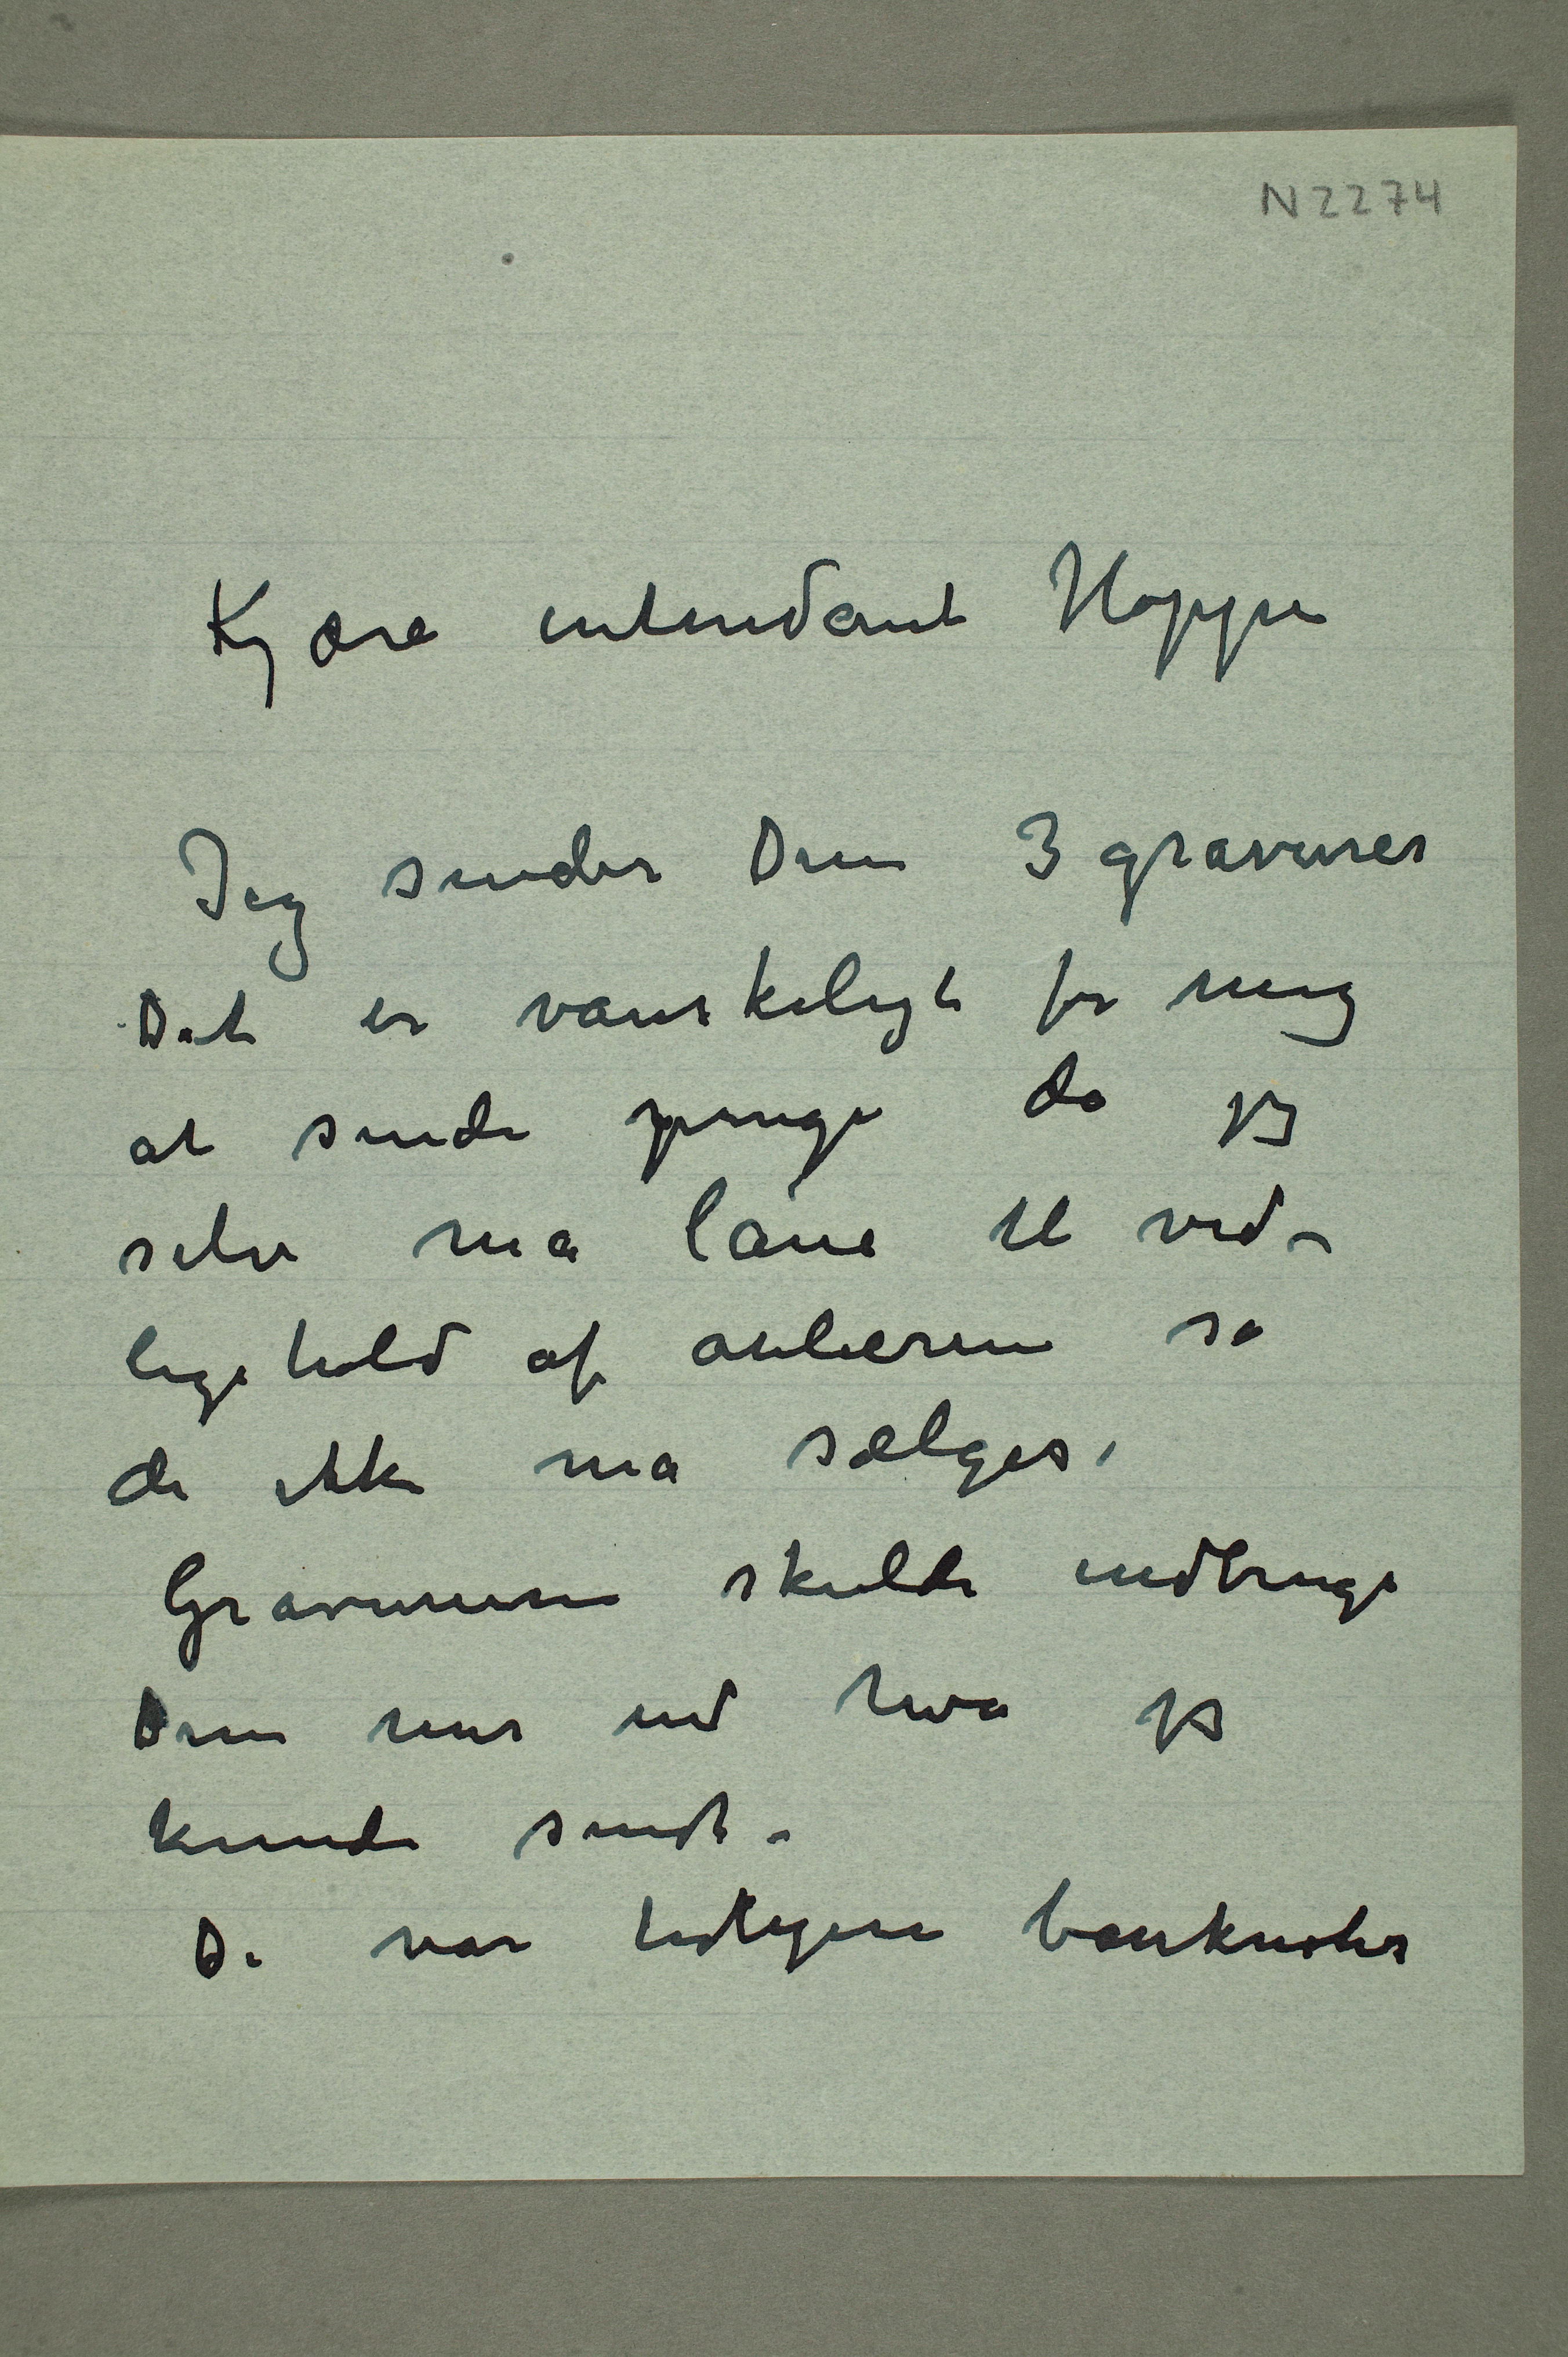 N 2274
Kjære intendant Hoppe
Jeg sender Dem 3 gravurer
Det er vanskeligt for mig
at sende penge da jeg
selv ma låne til ved-
ligehold af atelierene så
de ikke ma sælges.
Gravurerne skulde indbringe
Dem mer end hva jeg
kunde sendt.
De var tidligere banknoter